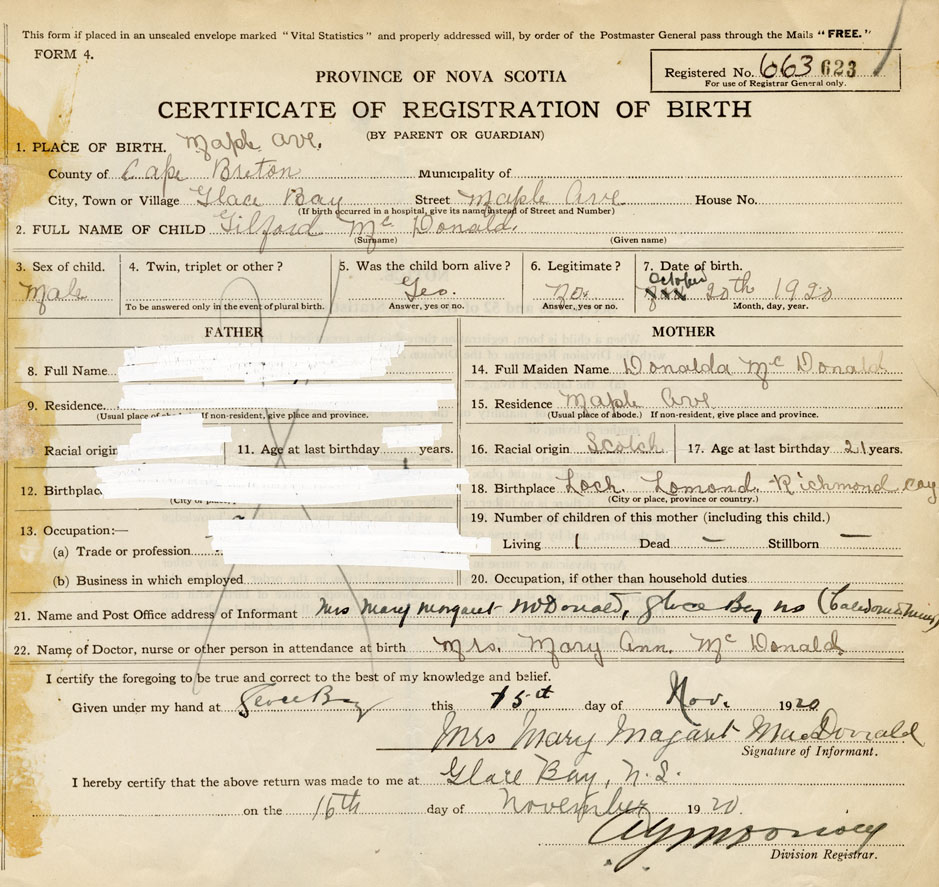 This form if placed in an unsealed envelope marked "Vital Statistics" and properly addressed will, by order of the Postmaster General pass through the Mails "FREE."
FORM 4.
Registered No. 663 623
For use of Registrar General only.
PROVINCE OF NOVA SCOTIA
CERTIFICATE OF REGISTRATION OF BIRTH
(BY PARENT OR GUARDIAN)
1. PLACE OF BIRTH. Maple Ave.
County of Cape Breton Municipality of
City, Town or Village Glace Bay Street Maple Ave House No.
(If birth occurred in a hospital, give its name instead of Street and Number)
2. FULL NAME OF CHILD Gilford Mc Donald.
(Surname) (Given name)
3. Sex of child. 4. Twin, triplet or other? 5. Was the child born alive? 6. Legitimate? 7. Date of birth.
Male Yes. No. October 20th 1920
To be answered only in the event of plural birth. Answer, yes or no. Answer, yes or no. Month, day, year.
FATHER MOTHER
8. Full Name 14. Full Maiden Name Donalda Mc Donald
9. Residence. 15. Residence Maple Ave
(Usual place of If non-resident, give place and province. (Usual place of abode.) If non-resident, give place and province.
Racial origin 11. Age at last birthday years. 16. Racial origin Scotch 17. Age at last birthday 21 years.
12. Birthplace 18. Birthplace Loch Lomond. Richmond Coy
(City or place, (City or place, province or country.)
13. Occupation:— 19. Number of children of this mother (including this child.)
(a) Trade or profession Living 1 Dead — Stillborn —
(b) Business in which employed 20. Occupation, if other than household duties
21. Name and Post Office address of Informant Mrs Mary Margaret McDonald, Glace Bay NS (Caledonia Mines)
22. Name of Doctor, nurse or other person in attendance at birth Mrs. Mary Ann. Mc Donald
I certify the foregoing to be true and correct to the best of my knowledge and belief.
Given under my hand at Glace Bay this 15st day of Nov. 1920
Mrs Mary Magaret MacDonald
Signature of Informant.
I hereby certify that the above return was made to me at Glace Bay, N.S.
on the 16th day of November 1920
Division Registrar.